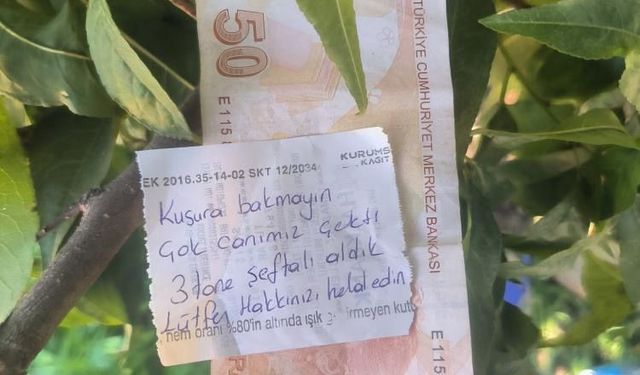 50
E 115
TÜRKİYE CUMHURİYET MERKEZ BANKASI
E 115
EK 2016.35-14-02 SKT 12/2034
KURUMS
KAĞIT
Kusura bakmayın
Çok canımız çekti
3 tane şeftali aldık
Lütfen Hakkınızı helal edin
nem oranı %80'in altında ışık g irmeyen kutu